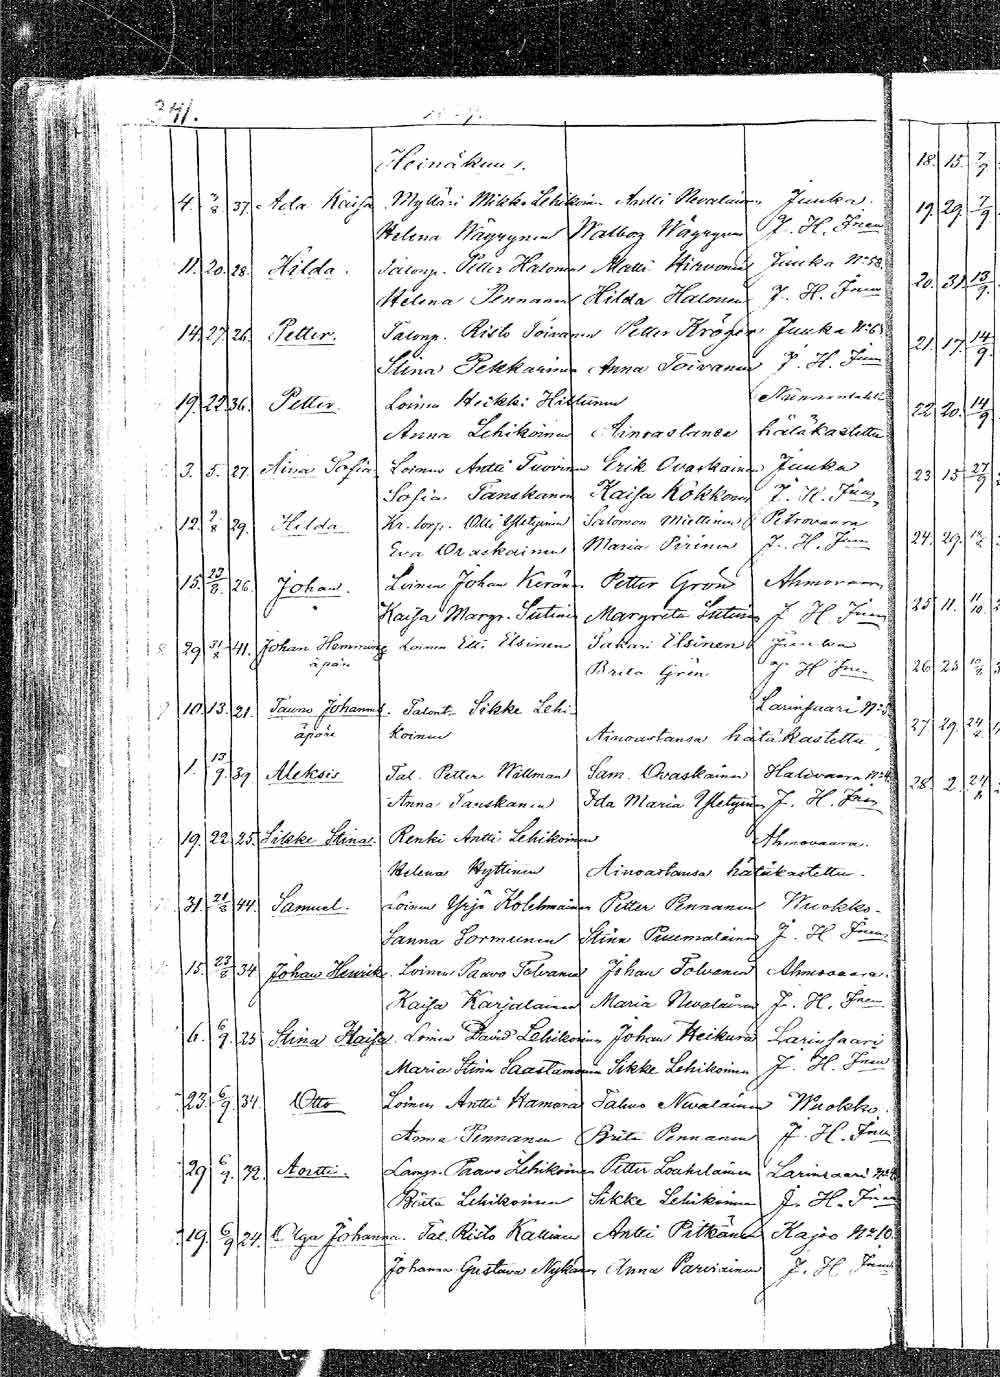 341.
Heinäkuu.
4. 2/8 37. Ada Kaisa Mylläri Mikko Lehikoin Antti Nevalainen Juuka.
Helena Wäyrynen Walbog Wäyrynen J. H. Inen
11. 20. 28. Hilda. Talonp. Petter Halonen Matti Hirvonen Juuka No 58.
Helena Pennanen Hilda Halonen J. H. Inen
14. 27. 26. Petter. Talonp. Risto Toivanen Petter Kröger Juuka No 6
Stina Pekkarinen Anna Toivanen J. H. Inen
19. 22. 36. Petter. Loinen Heikki Hiltunen
Anna Lehikoinen Ainoastansa hätäkastettu
3. 5. 27. Aina Sofia Loinen Antti Tuovinen Erik Ovaskainen Juuka
Sofia Tanskanen Kaisa Kokkonen J. H. Inen
12. 2/8 29. Hilda Kr. torp. Olli Yletyinen Salomon Miettinen Petrovaara
Eva Ovaskainen Maria Pirinen J. H. Inen
15. 23/8 26. Johan. Loinen Johan Keränen Petter Grön Ahmovaara
Kaisa Margr. Sutinen Margreta Sutinen J. H. Inen
29 31/8 41. Johan Hemming Loinen Elli Elsinen Sakari Elsinen Juuka
äpärä Brita Grön J H Inen
10. 13. 21. Tauno Johannes. Talont. Sikke Lehi- Larinsaari No 5
äpärä koinen Ainoastansa hätäkastettu
1. 13/9. 39. Aleksis Tal. Petter Wallman Sam. Ovaskainen Halivaara No 4.
Anna Tanskanen Ida Maria Yletyinen J. H. Inen
19. 22. 25. Sikke Stina. Renki Antti Lehikoinen Ahmovaara.
Helena Hyttinen Ainoastansa hätäkastettu.
31. 21/8 44. Samuel. Loinen Yrjö Kolehmainen Petter Pennanen Wuokko.
Sanna Sormunen Stina Puumalainen J. H. Inen
15. 23/8 34 Johan Henrik. Loinen Paavo Tolvanen Johan Tolvanen Ahmovaara.
Kaisa Karjalainen Maria Nevalainen J. H. Inen
6. 6/9. 25 Stina Kaisa. Loinen David Lehikoinen Johan Heikura Larinsaari
Maria Stina Saastamoinen Sikke Lehikoinen J. H. Inen
23. 6/9. 34. Otto Loinen Antti Kamara Tahvo Nevalainen Wuokko.
Anna Pennanen Brita Pennanen J. H. Inen
29 6/9. 32. Antti. Lampr. Paavo Lehikoinen Petter Laukilainen Larinsaari No 4
Brita Lehikoinen Sikke Lehikoinen J. H. Inen
19. 6/9 24. Olga Johanna. Tal. Risto Kallinen Antti Pitkänen Kajoo No 10.
Johanna Gustava Nykänen Anna Parviainen J. H. Inen
18. 15. 7/9
19. 29. 7/9.
20. 31. 13/9.
21. 17. 14/9.
22. 20. 14/9
23 15 27/9
24. 29.
25 11. 11/10
26. 23
27. 29.
28. 2. 24